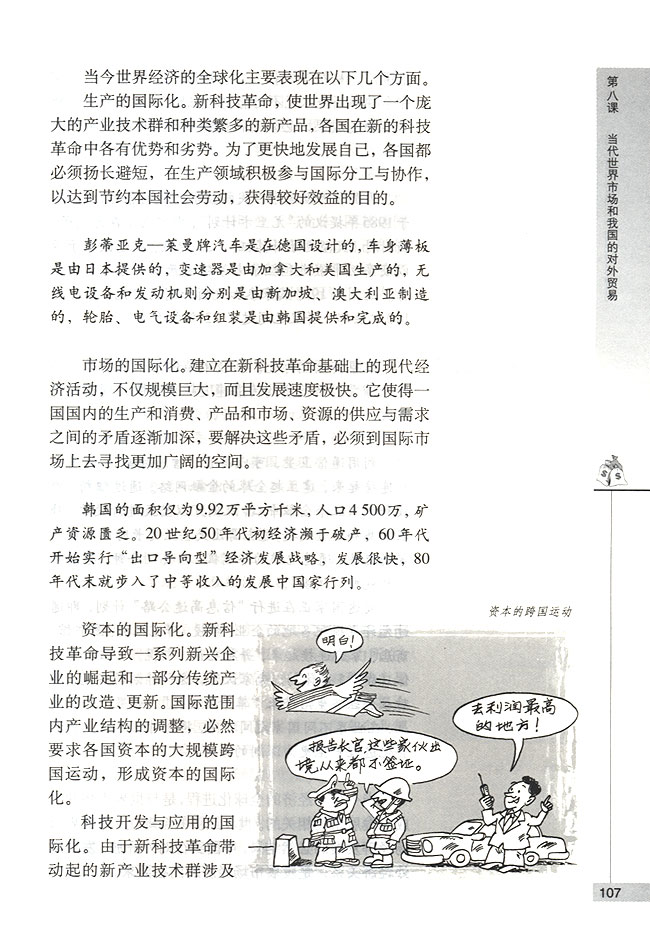 当今世界经济的全球化主要表现在以下几个方面。
生产的国际化。新科技革命，使世界出现了一个庞
大的产业技术群和种类繁多的新产品，各国在新的科技
革命中各有优势和劣势。为了更快地发展自己，各国都
必须扬长避短，在生产领域积极参与国际分工与协作，
以达到节约本国社会劳动，获得较好效益的目的。
彭蒂亚克—莱曼牌汽车是在德国设计的，车身薄板
是由日本提供的，变速器是由加拿大和美国生产的，无
线电设备和发动机则分别是由新加坡、澳大利亚制造
的，轮胎、电气设备和组装是由韩国提供和完成的。
市场的国际化。建立在新科技革命基础上的现代经
济活动，不仅规模巨大，而且发展速度极快。它使得一
国国内的生产和消费、产品和市场、资源的供应与需求
之间的矛盾逐渐加深，要解决这些矛盾，必须到国际市
场上去寻找更加广阔的空间。
韩国的面积仅为9.92万平方千米，人口4 500万，矿
产资源匮乏。20世纪50年代初经济濒于破产，60年代
开始实行“出口导向型”经济发展战略，发展很快，80
年代末就步入了中等收入的发展中国家行列。
资本的国际化。新科
技革命导致一系列新兴企
业的崛起和一部分传统产
业的改造、更新。国际范围
内产业结构的调整，必然
要求各国资本的大规模跨
国运动，形成资本的国际
化。
科技开发与应用的国
际化。由于新科技革命带
动起的新产业技术群涉及
资本的跨国运动
明白！
去利润最高
的地方！
报告长官，这些家伙出
境从来都不签证。
第八课 当代世界市场和我国的对外贸易
$ $
107